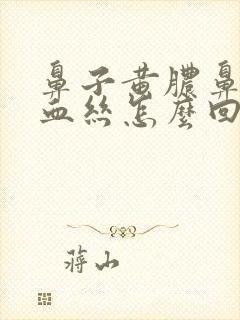 鼻子黄膿鼻
血絲怎麼回
蔣山